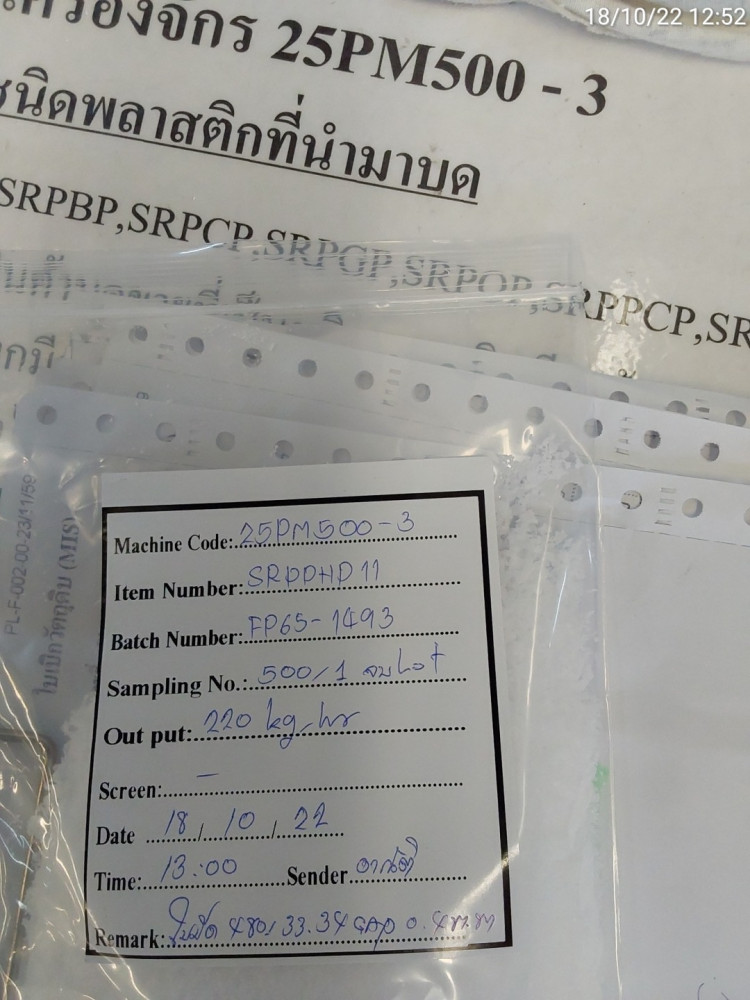 18/10/22 12:52
เครื่องจักร 25PM500 - 3
ชนิดพลาสติกที่นำมาบด
SRPBP,SRPCP,SRPGP,SRPOP,SRPPCP,SR
PL-F-002-00-23/11/59
ใบเบิกวัตถุดิบ (MIS)
Machine Code: 25PM500-3
Item Number: SRPPHD11
Batch Number: FP65-1493
Sampling No.: 500/1 จบ Lot
Out put: 220 kg/hr
Screen: –
Date 18 / 10 / 22
Time: 13:00 Sender
Remark: 480/33.34 GAP 0.4 m.m